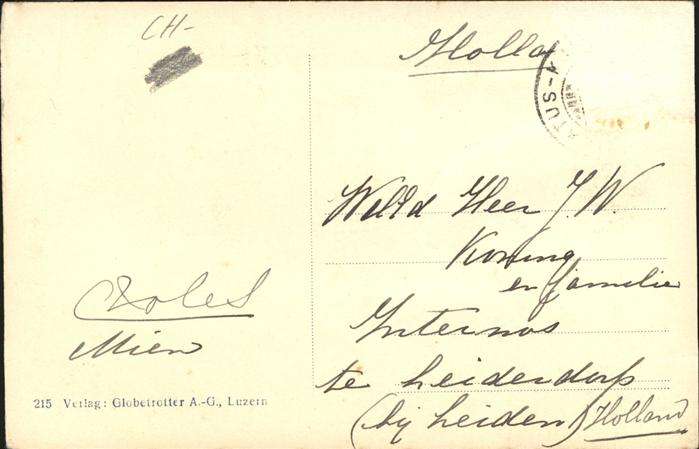 CH-
Holla
TUS-A
Weled Heer J. W.
Koning
en familie
Internos
te Leiderdorp
(bij Leiden) Holland
Mien
215 Verlag: Globetrotter A.-G., Luzern